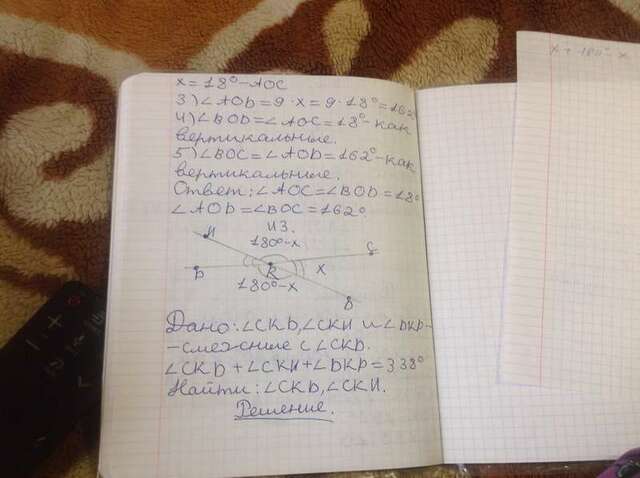 x=18°-AOC
3) ∠AOD=9·x=9·18°=162°
4) ∠BOD=∠AOC=18°-как
вертикальные.
5) ∠BOC=∠AOD=162°-как
вертикальные.
Ответ: ∠AOC=∠BOD=18°
∠AOD=∠BOC=162°.
И
180°-x
C
P
K
x
180°-x
D
Дано: ∠CKD, ∠CKИ и ∠DKP-
-смежные с ∠CKD.
∠CKD+∠CKИ+∠DKP=338°
Найти: ∠CKD, ∠CKИ.
Решение.